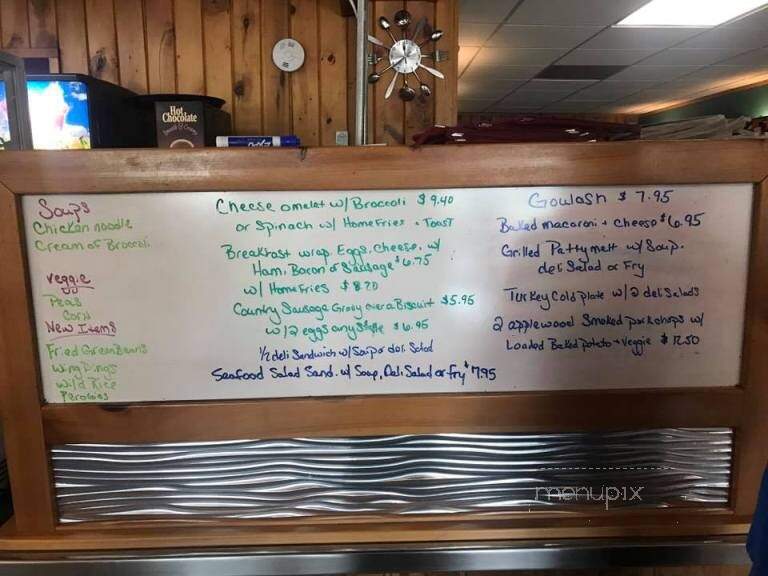 Hot
Chocolate
Smooth & Creamy
Soups
Chicken noodle
Cream of Broccoli
Veggie
Peas
Corn
New Items
Fried Green Beans
Wing Dings
Wild Rice
Perogies
Cheese omelet w/ Broccoli $9.40
or Spinach w/ Home Fries + Toast
Breakfast wrap. Eggs, cheese, w/
Ham, Bacon or Sausage $6.75
w/ Home Fries $8.20
Country Sausage Gravy over a Biscuit $5.95
w/ 2 eggs any style $6.95
1/2 deli Sandwich w/ Soup or deli Salad
Seafood Salad Sand. w/ Soup, Deli Salad or fry $7.95
Gowlash $7.95
Baked macaroni + cheese $6.95
Grilled Pattymelt w/ Soup.
deli Salad or Fry
Turkey Cold plate w/ 2 deli Salads
2 applewood Smoked porkchops w/
Loaded Baked potato + Veggie $12.50
menupix